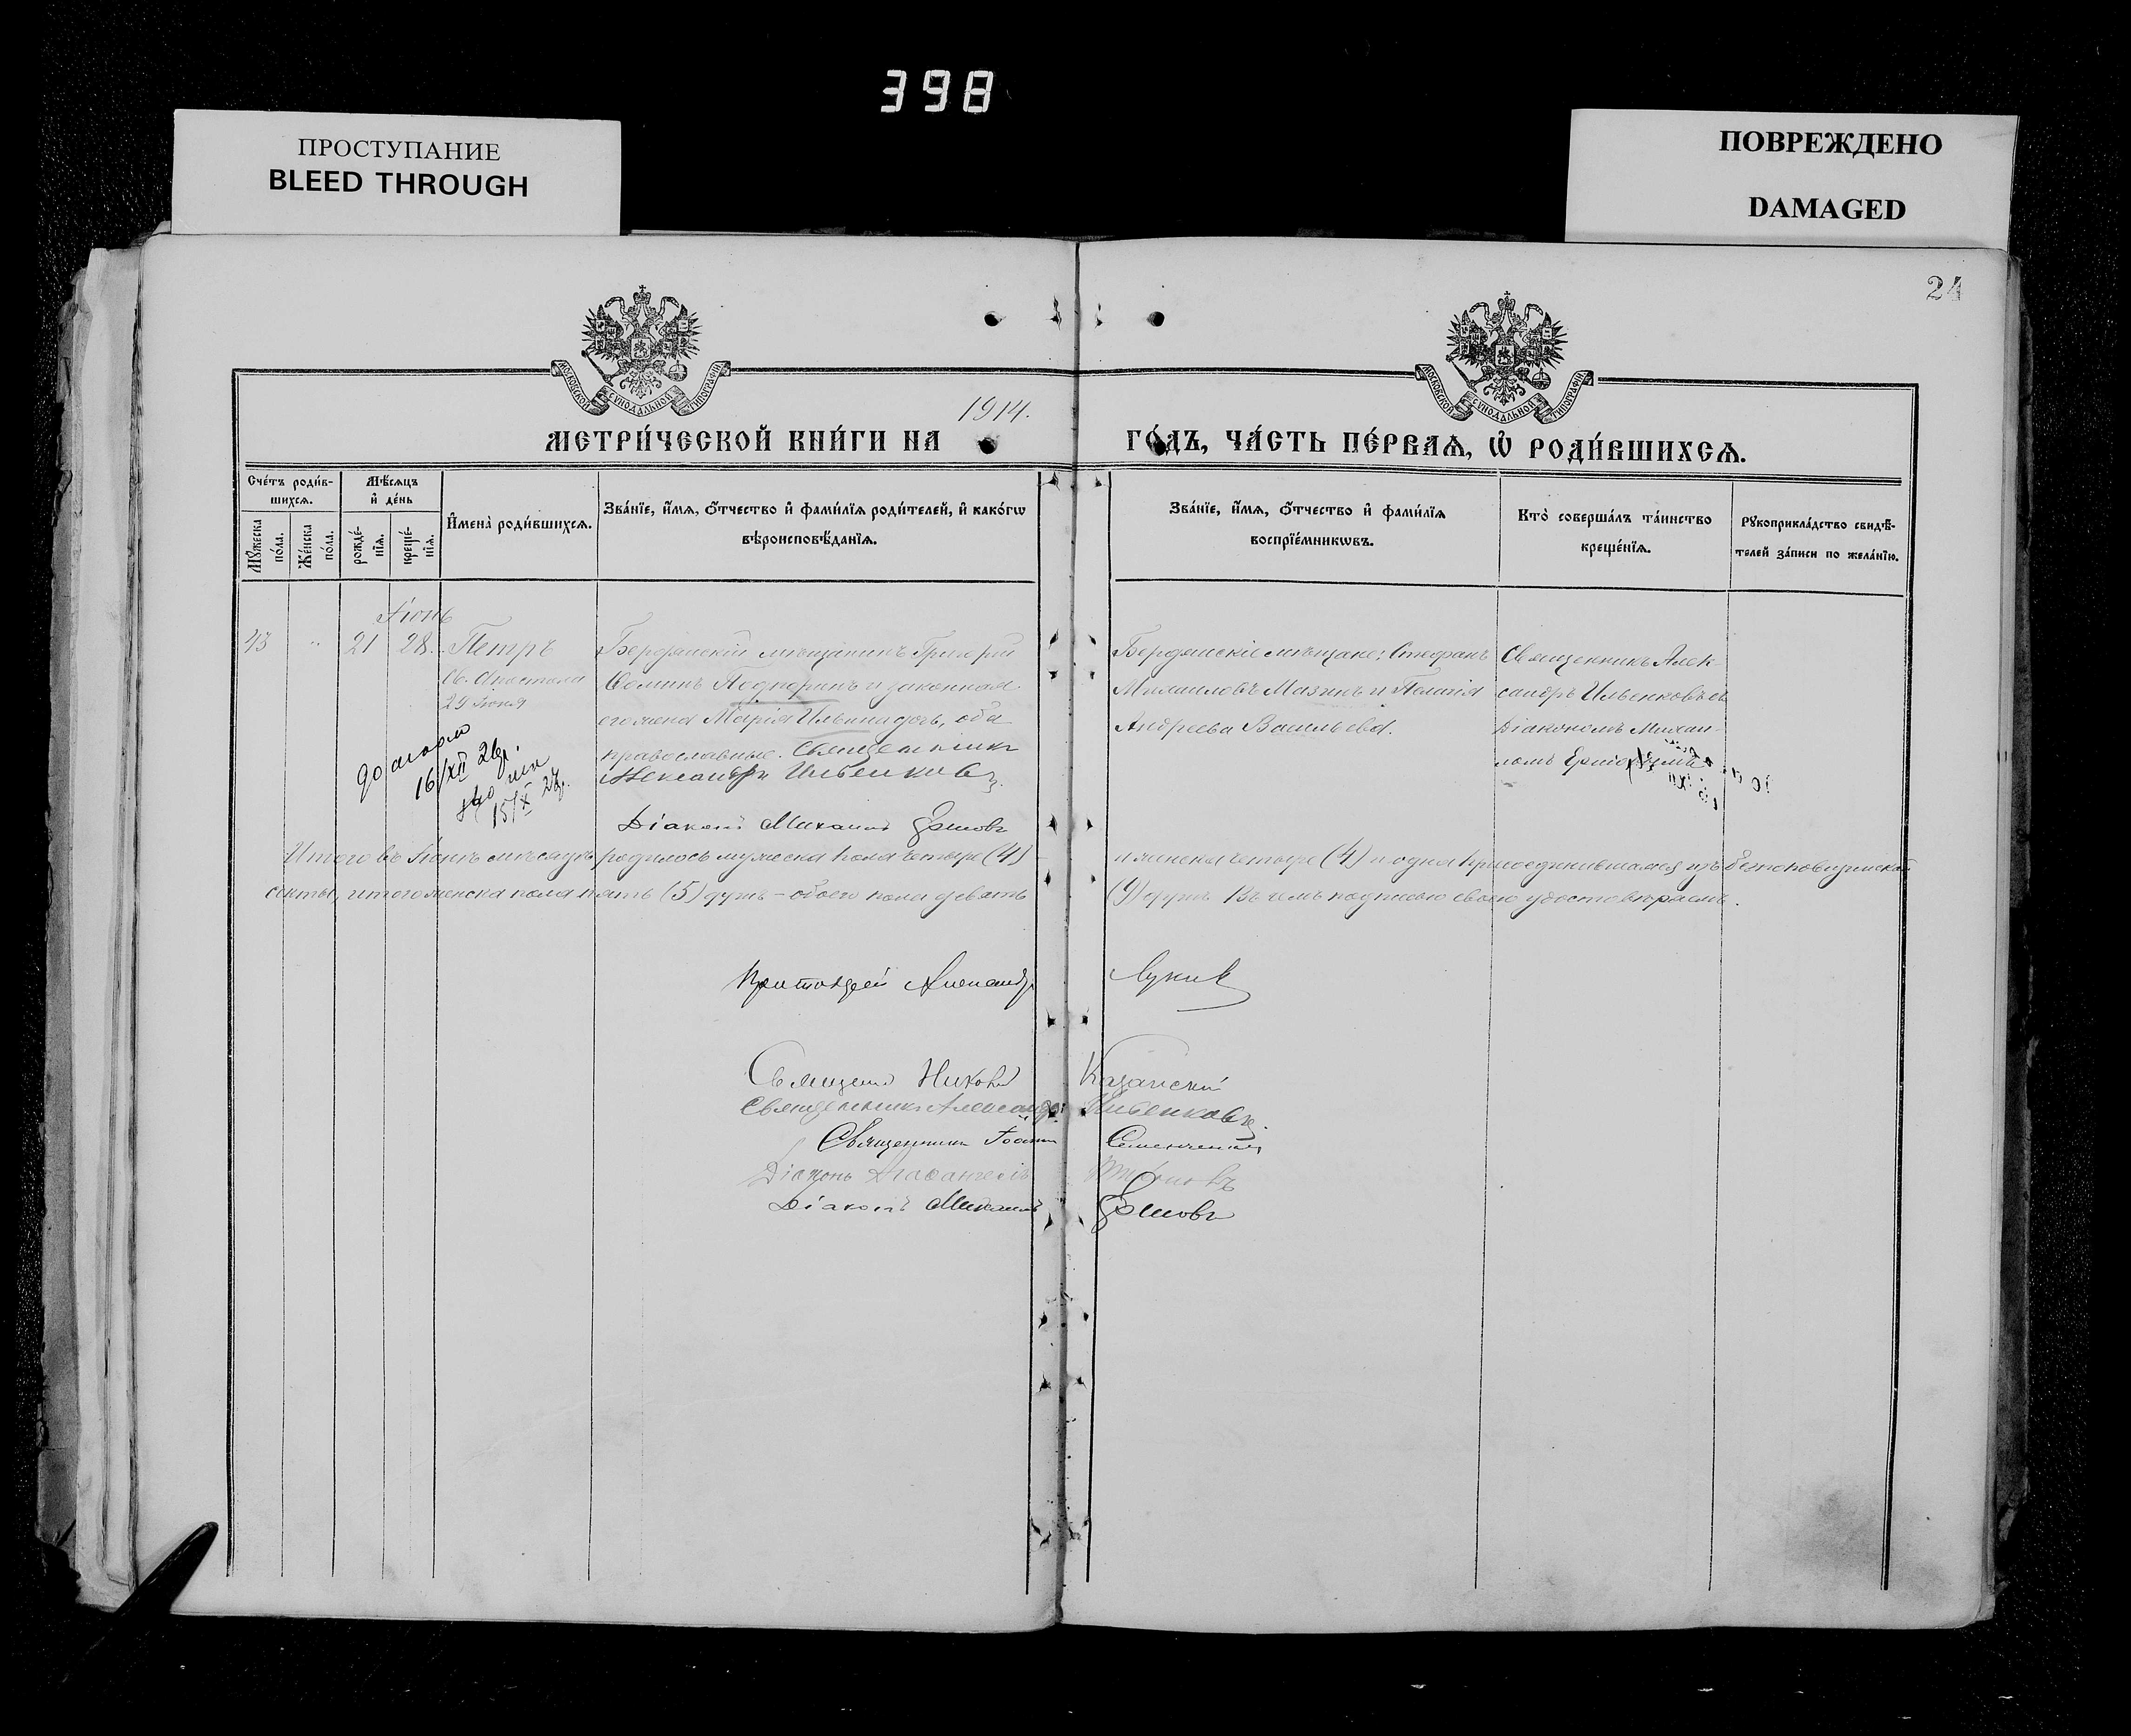 398
ПРОСТУПАНИЕ
BLEED THROUGH
ПОВРЕЖДЕНО
DAMAGED
24
МОСКОВСКОЙ СУНОДАЛЬНОЙ ТИПОГРАФІИ
МОСКОВСКОЙ СУНОДАЛЬНОЙ ТИПОГРАФІИ
1914.
МЕТРИ́ЧЕСКОЙ КНИ́ГИ НА
ГО́ДЪ, ЧА́СТЬ ПЕ́РВАѦ, Ѡ҆ РОДИ́ВШИХСѦ.
Сче́тъ роди́в-
шихсѧ.
Мꙋ́жеска
по́ла.
Же́нска
по́ла.
Мѣ́сѧцъ
и҆ де́нь
рожде́-
нїѧ.
креще́-
нїѧ.
И҆мена̀ роди́вшихсѧ.
Зва́нїе, и҆́мѧ, о҆́тчество и҆ фами́лїѧ роди́телей, и҆ како́гѡ
вѣроисповѣ́данїѧ.
Зва́нїе, и҆́мѧ, о҆́тчество и҆ фами́лїѧ
воспрїе́мникѡвъ.
Кто̀ соверша́лъ та́инство
креще́нїѧ.
Рꙋкоприкла́дство свидѣ́-
телей за́писи по жела́нїю.
Іюнь
43 " 21 28. Петръ
Св. Апостола
29 Іюня
Бердянскій мѣщанинъ Григорій
Ѳоминъ и законная
его жена Марія Ильинична, оба
православные. Священникъ
Александръ Ильенковъ.
Діаконъ Михаилъ
Бердянскіе мѣщане: Стефанъ
Михаиловъ Мазинъ и Пелагія
Андреева Васильева.
Священникъ Алек-
сандръ Ильенковъ съ
Діакономъ Михаи-
ломъ
16/XII 26
15/X 27
Итого въ Іюнѣ мѣсяцѣ родилось мужеска пола четыре (4)
и женска четыре (4) и одна присоединившаяся изъ
секты, итого женска пола пять (5) душъ – обоего пола девять
(9) душъ. Въ чемъ подписью своею удостовѣряемъ.
Протоіерей Александръ
Священникъ Казанскій
Священникъ Александръ Ильенковъ.
Священникъ Іоаннъ
Діаконъ
Діаконъ Михаилъ